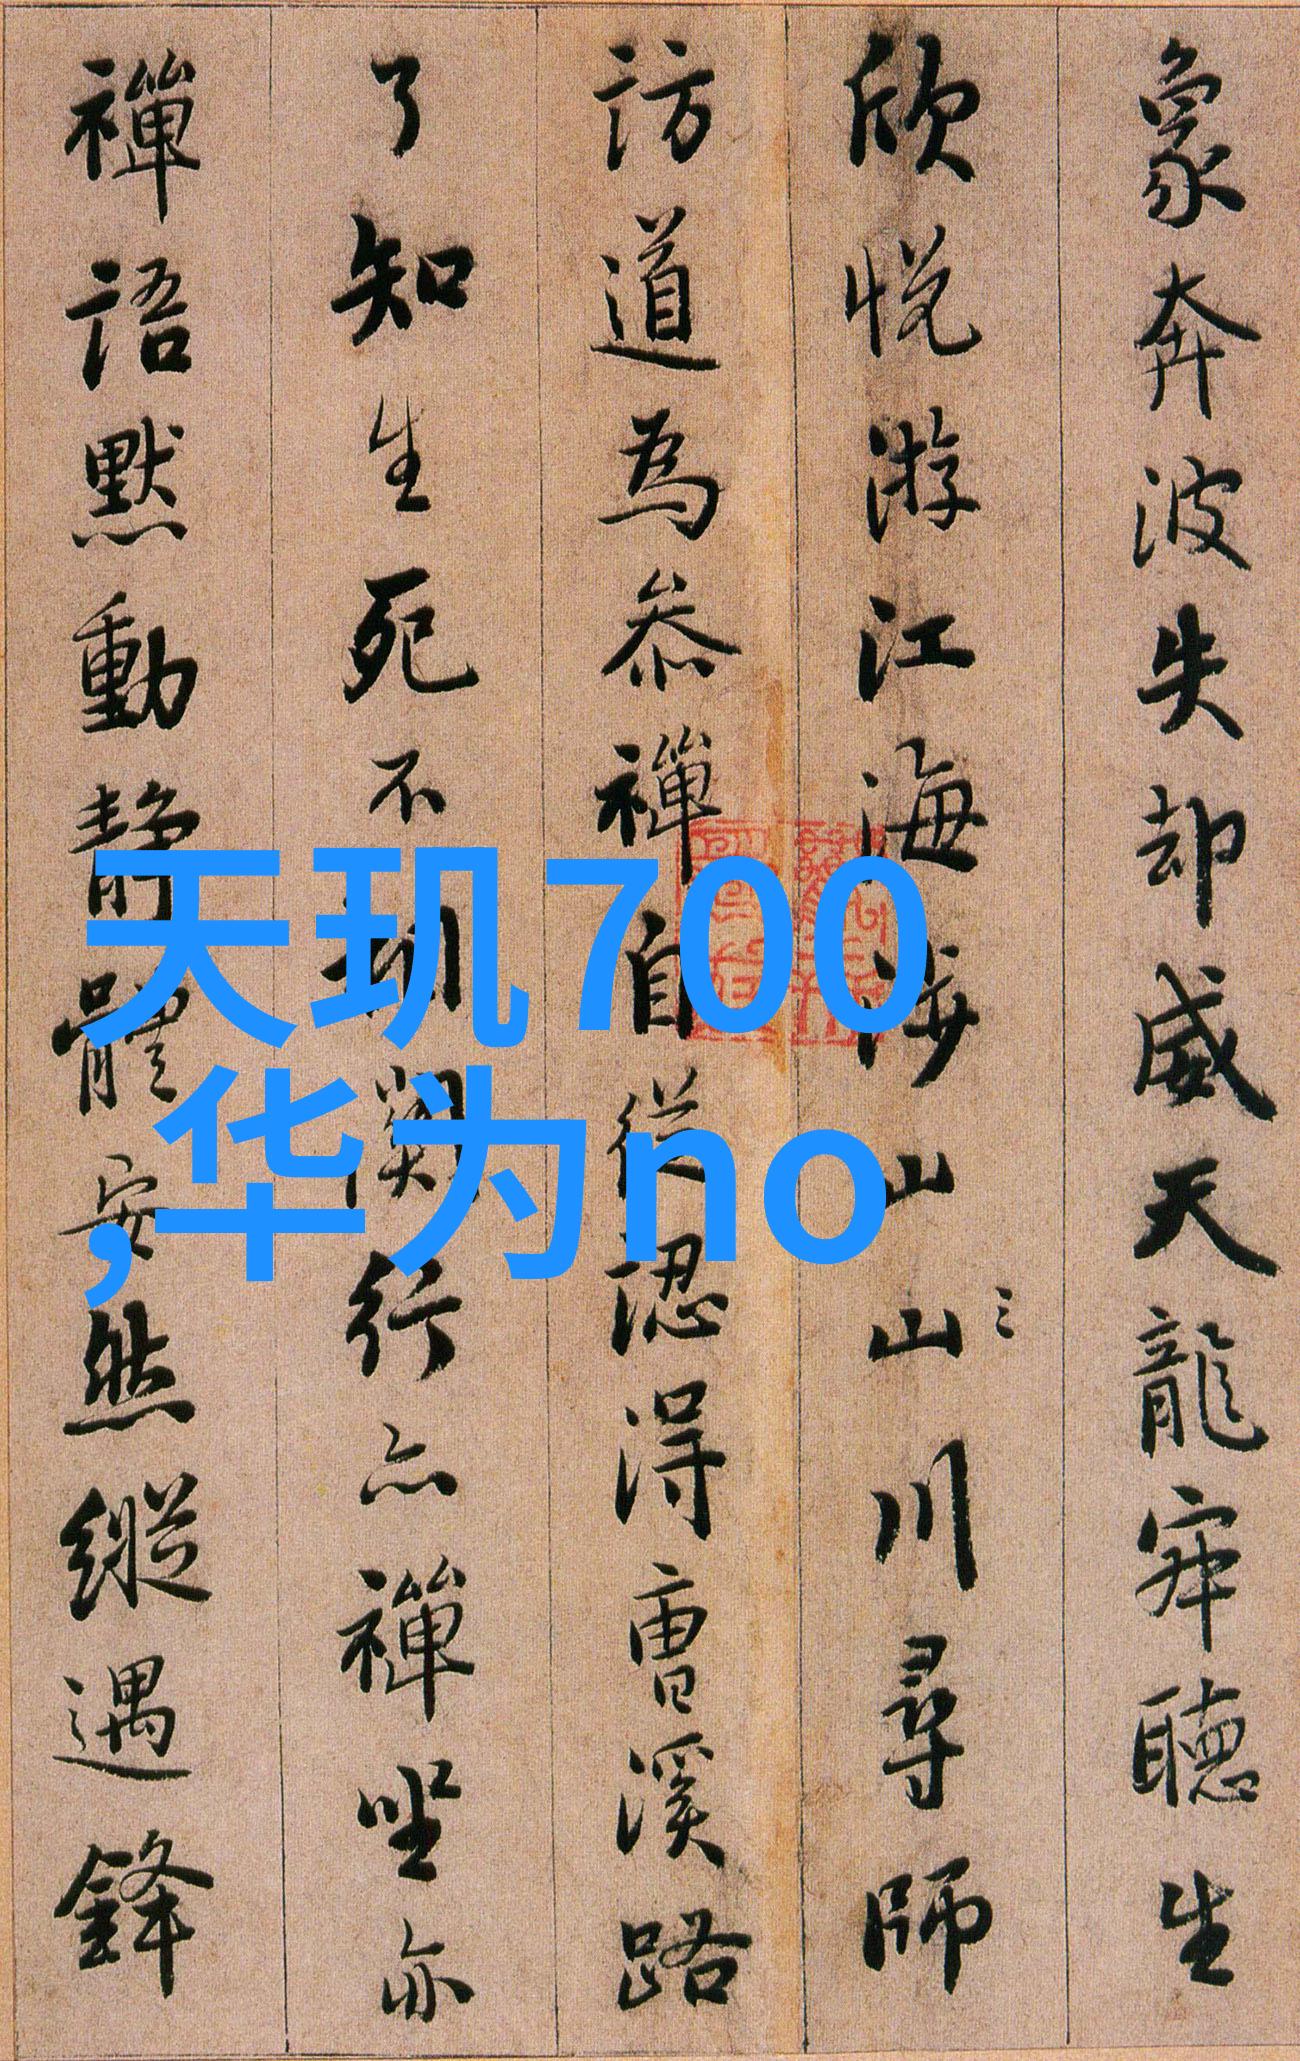 象奔波失却威天龍𡨴聽生
欣悅游江海涉山山川尋師
訪道為參禪自從認得曹溪路
了知生死不相關行亦禪坐亦
禪語默動靜體安然縱遇鋒
天玑700
,华为no